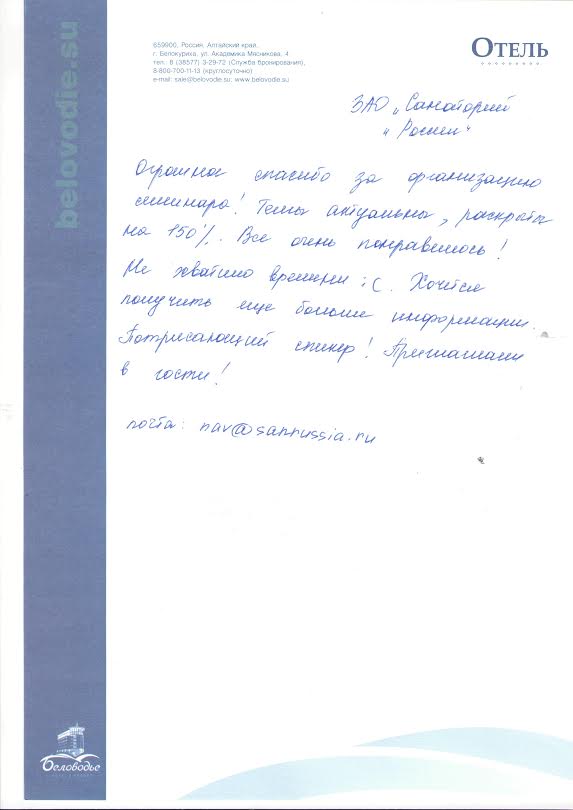 belovodie.su
659900, Россия, Алтайский край,
г. Белокуриха, ул. Академика Мясникова, 4
тел.: 8 (38577) 3-29-72 (Служба бронирования),
8-800-700-11-13 (круглосуточно)
e-mail: sale@belovodie.su; www.belovodie.su
Отель
ЗАО „Санаторий
„Россия"
Огромное спасибо за организацию
семинара! Темы актуальны, раскрыты
на 150%. Все очень понравилось!
Не хватило времени :(. Хочется
получить еще больше информации.
Потрясающий спикер! Приглашаем
в гости!
почта: nav@sanrussia.ru
Беловодье